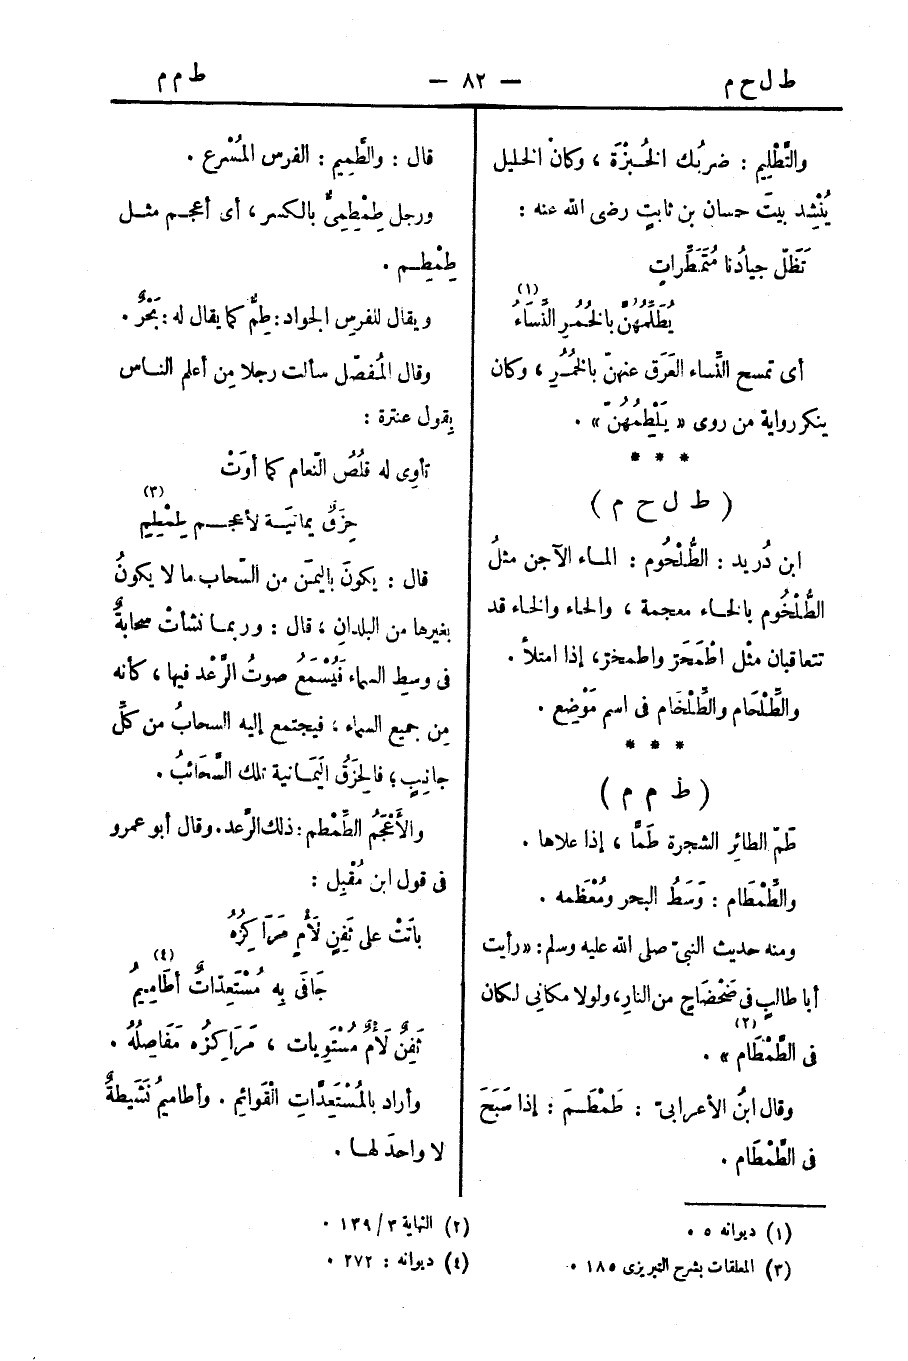 ط ل ح م
— ٨٢ —
ط م م
والتَّطْلِيم : ضربُك الخُبزَةَ ، وكانَ الخليل
يُنْشِد بيتَ حسان بن ثابتٍ رضى الله عنه :
تَظَلّ جيادُنا مُتَمَطِّراتٍ
يُطَلِّمُهُنَّ بالخُمرِ النِّسَاءُ (١)
أى تمسح النِّساء العَرَق عنهنّ بالخُمُرِ ، وكان
ينكر رواية من روى « يَلْطِمُهُنّ » .
* * *
( ط ل ح م )
ابن دُريد : الطُّلْحُوم : الماء الآجن مثلُ
الطُّلْخُوم بالخاء معجمة ، والحاء والخاء قد
تتعاقبان مثْل اطْمَحَرَّ واطمخرّ، إذا امتلأ .
والطِّلْحَام والطِّلْخَام فى اسم مَوْضِع .
* * *
( ط م م )
طَمّ الطائِر الشجرة طَمًّا ، إذا علاها .
والطِّمْطَام : وَسَطُ البحر ومُعْظَمه .
ومنه حديث النبىّ صلى الله عليه وسلم : « رأيت
أبا طالبٍ فى ضَحْضَاحٍ من النارِ، ولولا مكانى لكان
فى الطَّمْطَام » . (٢)
وقال ابنُ الأعرابىّ : طَمْطَمَ : إذا سَبَحَ
فى الطَّمْطَام .
قال : والطَّمِيم : الفرس المُسْرع .
ورجل طِمْطِمِىٌّ بالكسر ، أى أعجم مثل
طِمْطِم .
ويقال للفرسِ الجواد : طِمٌّ كما يقال له : بَحْرٌ .
وقال المُفضّل سألت رجلا مِن أعلم الناس
بِقول عنترة :
تأوِى له قلُصُ النّعام كما أوَتْ
حِزَقٌ يمانيَة لأعجم طِمْطِمِ (٣)
قال : يكونَ بِاليمَن من السّحاب ما لا يكونُ
بغيرها من البلدانِ ، قال : وربما نشأتْ سحابةٌ
فى وسطِ السماء فَيُسْمَعُ صوتُ الرَّعْد فيها ، كأنه
مِن جميع السماء ، فيجتمع إليه السحابُ من كلِّ
جانِبٍ ؛ فالحِزَقُ اليَمَانية تلك السَّحَائبُ .
والأَعْجَمُ الطِّمْطم : ذلك الرَّعد . وقال أبو عمرو
فى قول ابن مُقْبِل :
باتَتْ على ثفِنٍ لَأْمٍ مَرَاكِزُهُ
جَافَى بِهِ مُسْتَعِدّاتٌ أطَامِيمُ (٤)
ثَفِنٌ لَأْمٌ مُسْتَوِيات ، مَرَاكِزُه مَفَاصِلُهُ .
وأراد بالمُسْتَعِدَّاتِ الْقَوائِم . وأطاميمُ نَشِيطةٌ
لا واحدَ لها .
(١) ديوانه ٥ .
(٢) النهاية ٣ / ١٣٩ .
(٣) المعلقات بشرح التبريزى ١٨٥ .
(٤) ديوانه : ٢٧٢ .